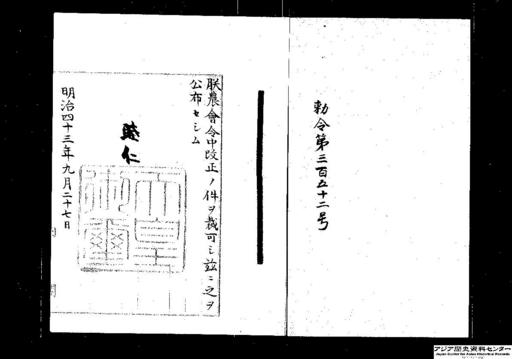 勅令第三百五十二号
朕農會令中改正ノ件ヲ裁可シ玆ニ之ヲ
公布セシム
睦仁
天皇
御璽
明治四十三年九月二十七日
内閣
アジア歴史資料センター
Japan Center for Asian Historical Records